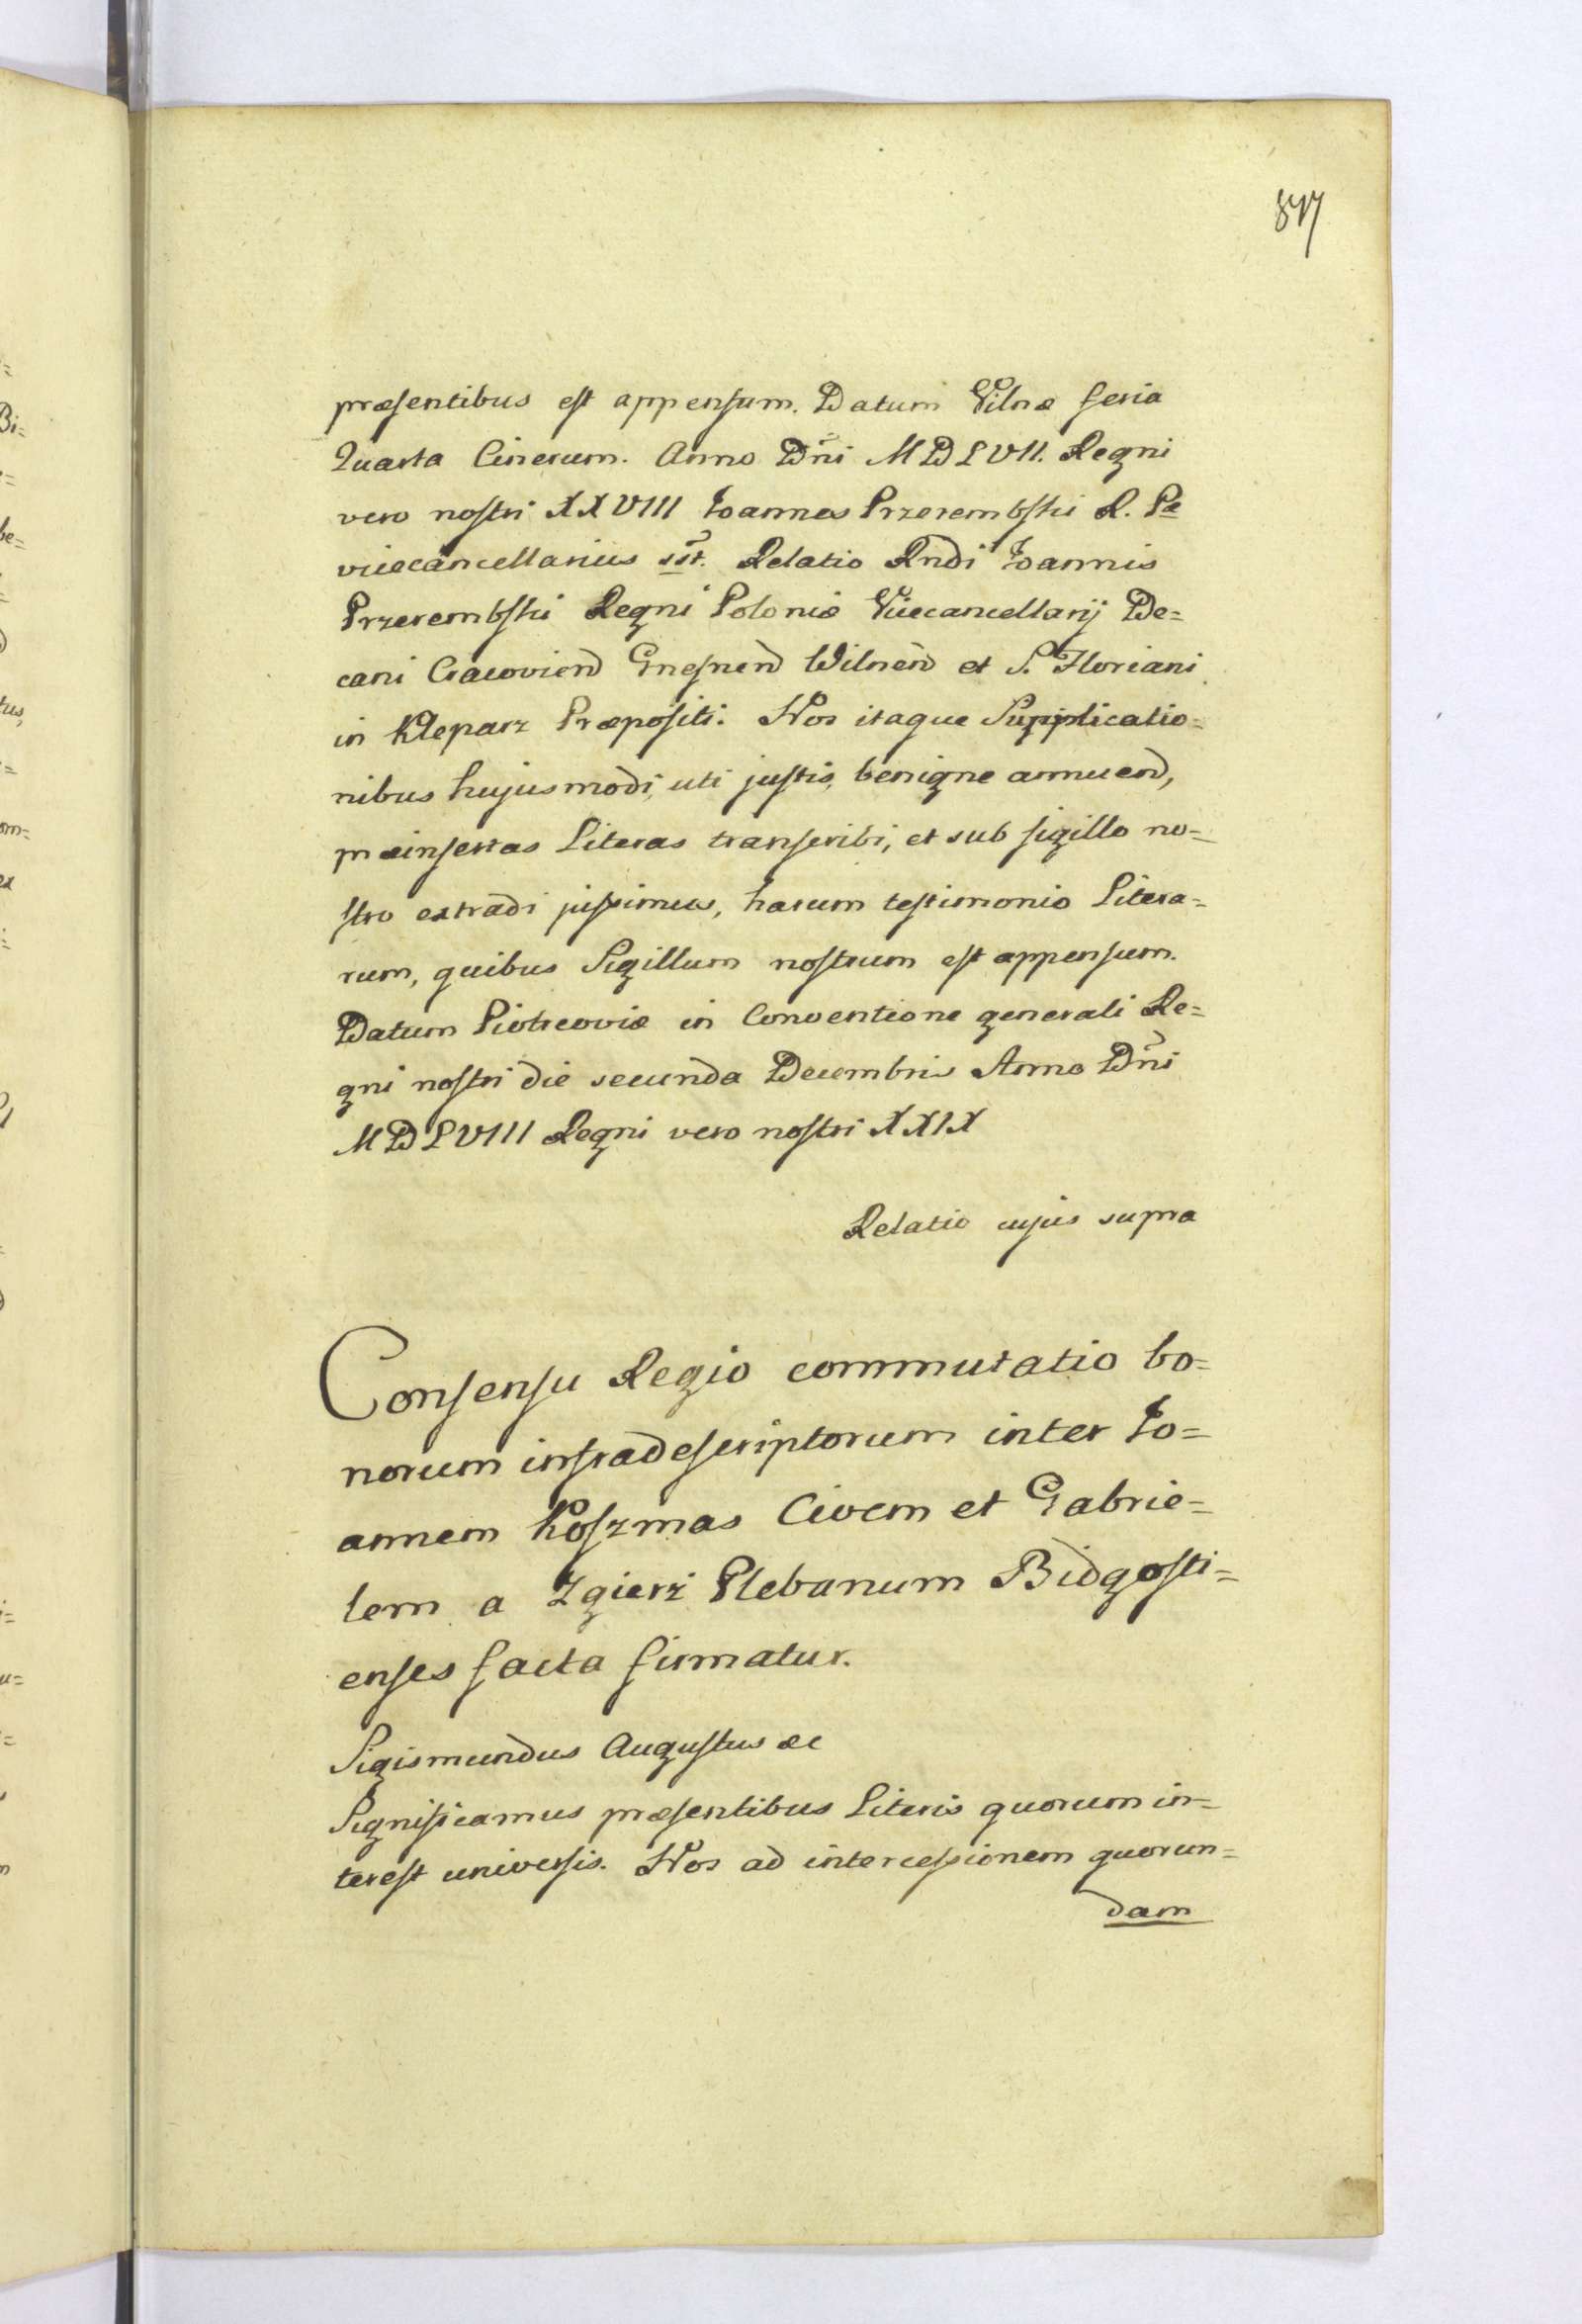 877
præsentibus est appensum. Datum Vilnæ feria
Quarta Cinerum. Anno Dñi MDLVII. Regni
vero nostri XXVIII Joannes Przerembski R. Pæ
vicecancellarius sst. Relatio Rndi Joannis
Przerembski Regni Poloniæ Vicecancellarij De=
cani Cracovien Gnesnen Wilnen et S. Floriani
in Kleparz Præpositi. Nos itaque Supplicatio=
nibus hujusmodi, uti justis, benigne annuend,
præinsertas Literas transcribi, et sub sigillo no=
stro extradi jussimus, harum testimonio Litera=
rum, quibus Sigillum nostrum est appensum.
Datum Piotrcoviæ in Conventione generali Re=
gni nostri die secunda Decembris Anno Dñi
MDLVIII Regni vero nostri XXIX
Relatio cujus supra
Consensu Regio commutatio bo=
norum infradescriptorum inter Jo=
annem Koszmas Civem et Gabrie=
lem a Zgierz Plebanum Bidgosti=
enses facta firmatur.
Sigismundus Augustus æc
Significamus præsentibus Literis quorum in=
terest universis. Nos ad intercessionem quorun=
dam